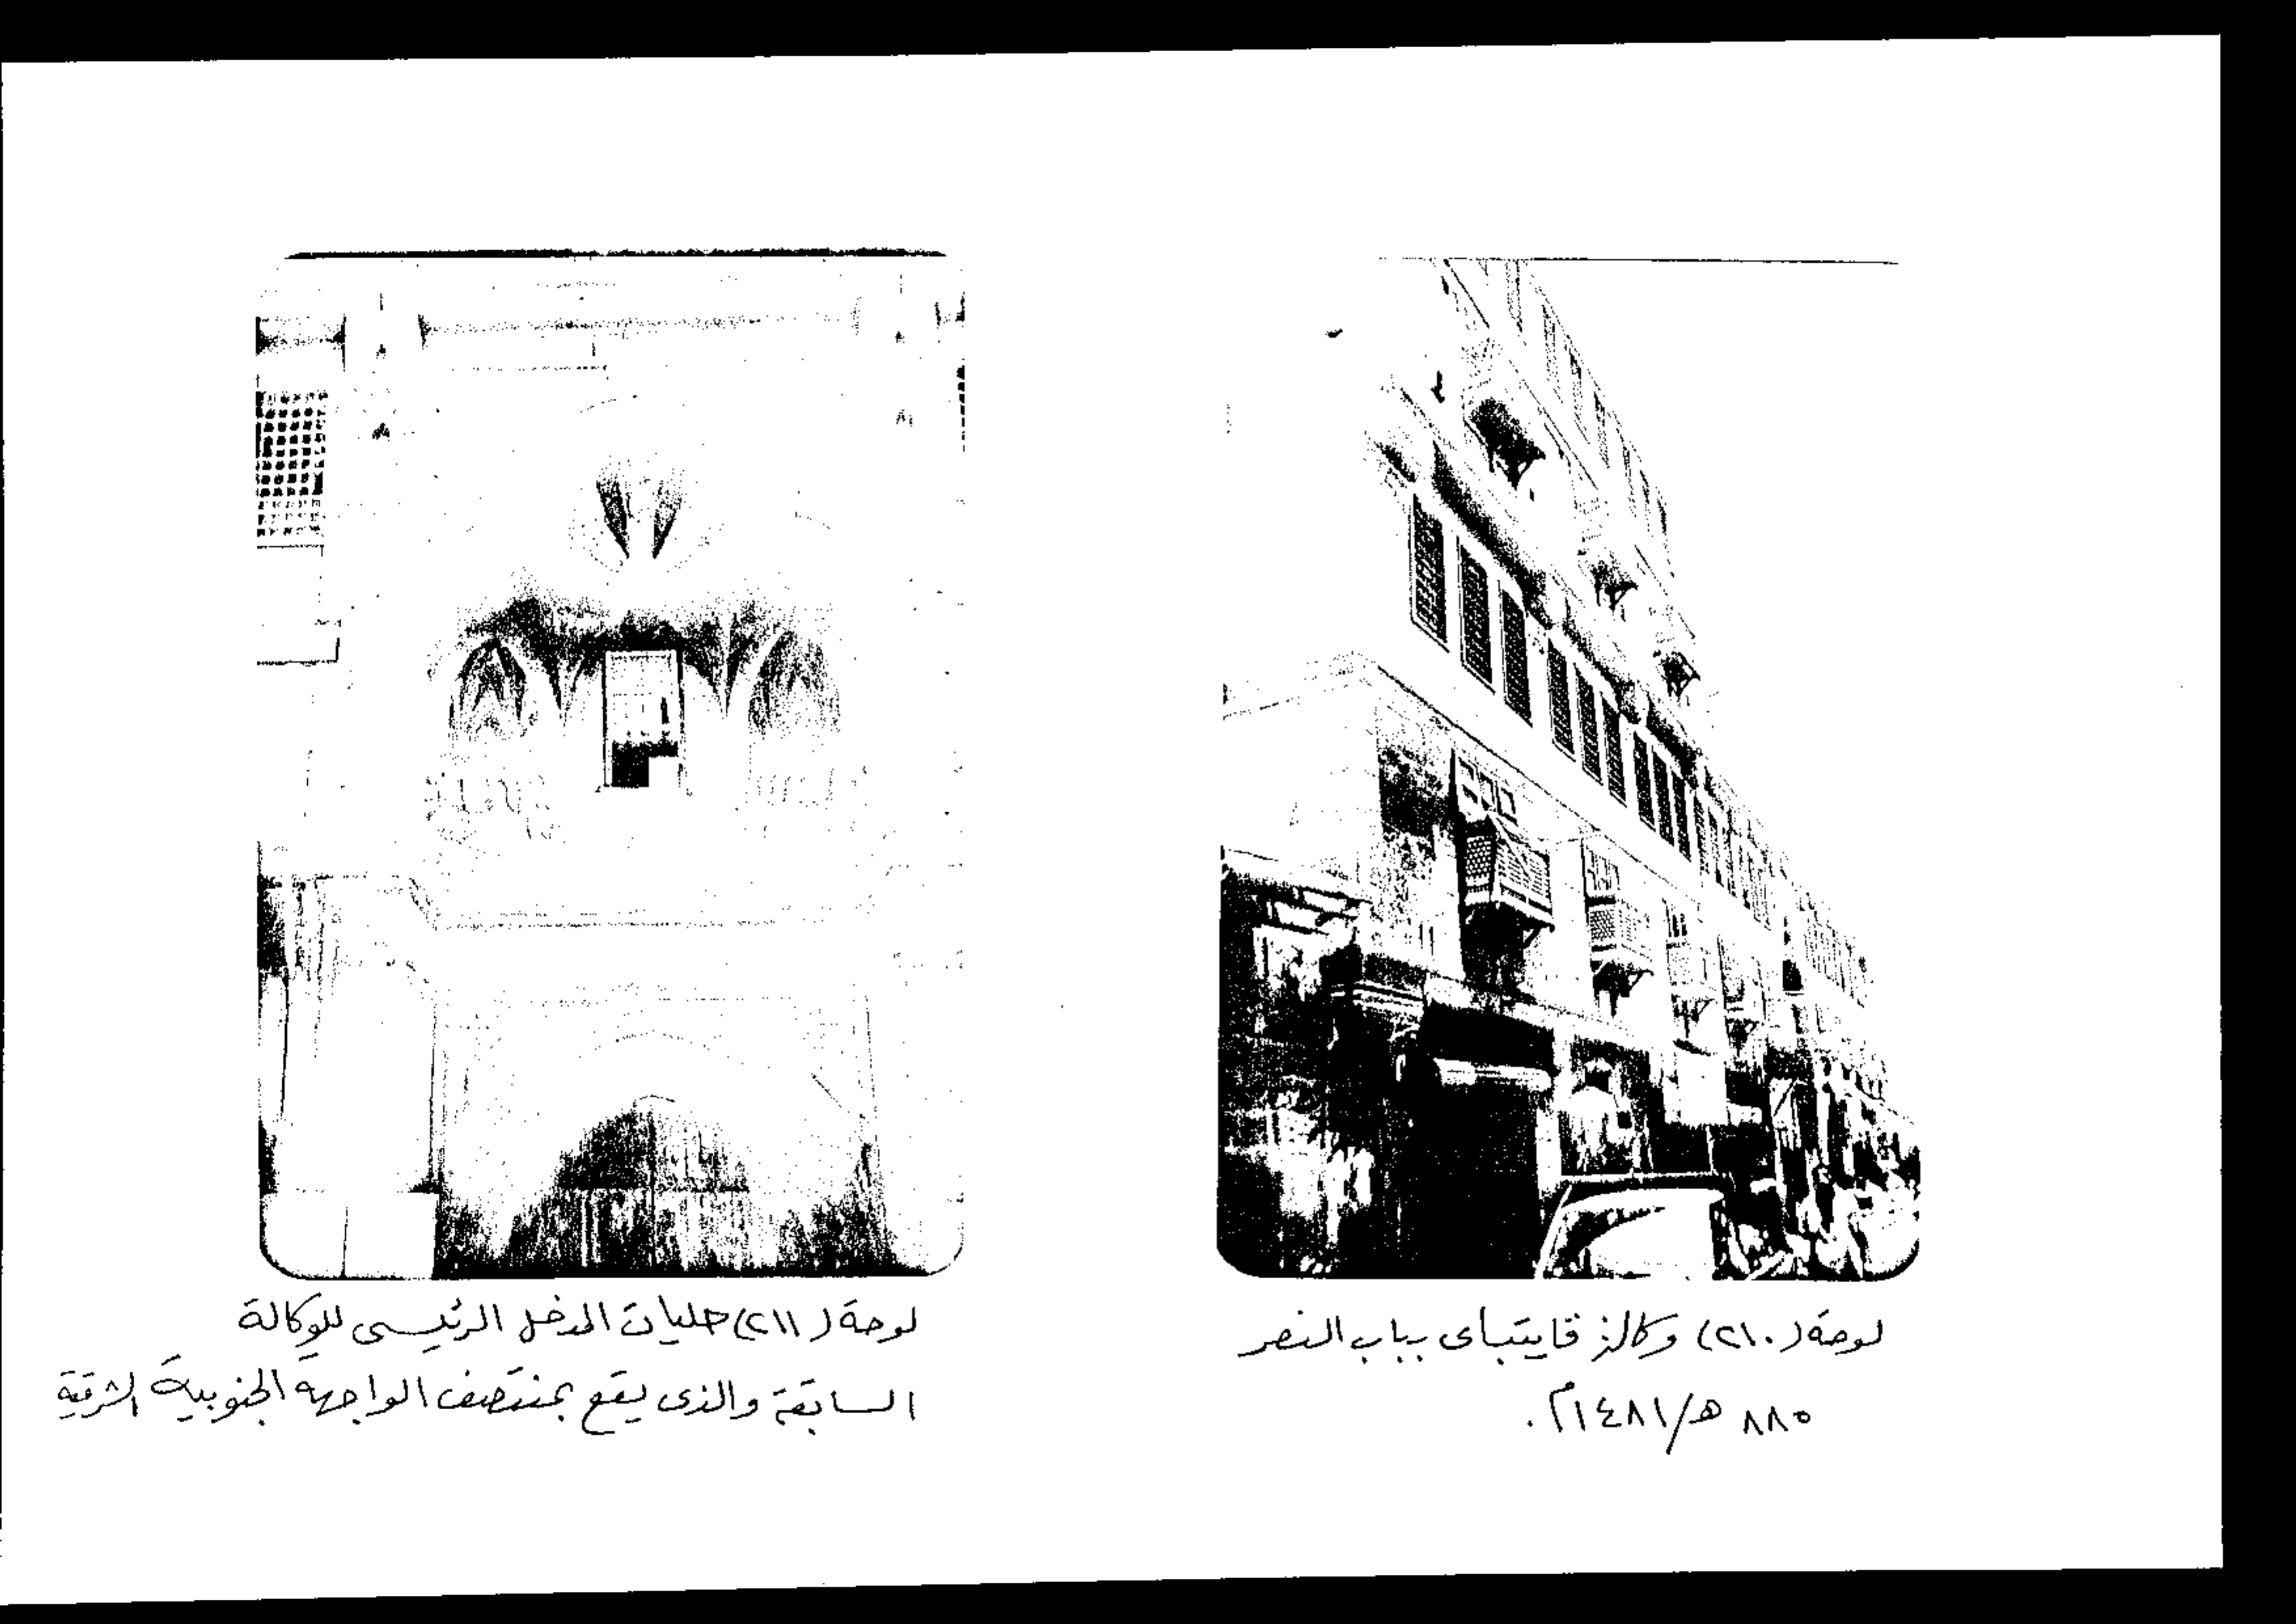 لوحة (٢١٠) وكالة قايتباى بباب النصر
٨٨٥ هـ/١٤٨١م.
لوحة (٢١١) حليات المدخل الرئيسى للوكالة
السابقة والذى يقع بمنتصف الواجهة الجنوبية الشرقية